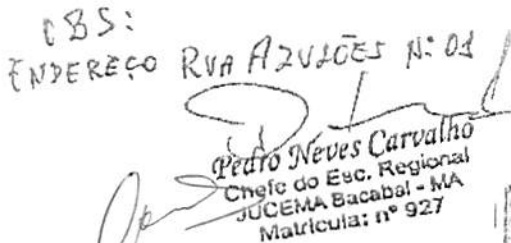 OBS:
ENDEREÇO RUA AZULÕES Nº 01
Pedro Neves Carvalho
Chefe do Esc. Regional
JUCEMA Bacabal - MA
Matrícula: nº 927